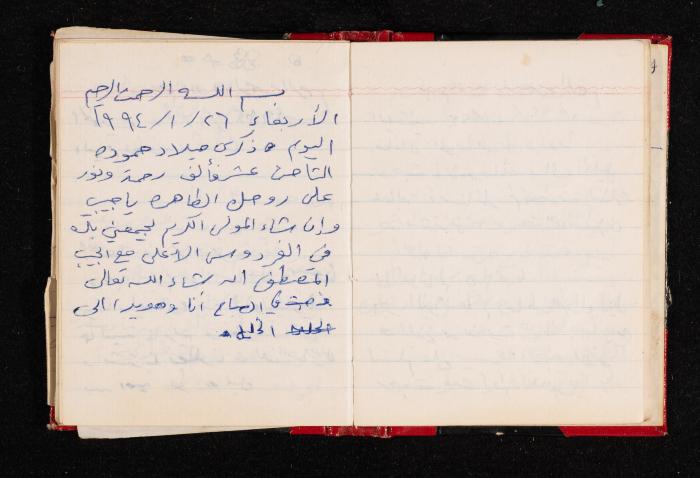 بسم الله الرحمن الرحيم
الأربعاء ٢٦ / ١ / ١٩٩٤
اليوم ذكرى ميلاد حموده
الثامن عشر فألف رحمة ونور
على روحك الطاهره يا حبيبي
وإن شاء المولى الكريم يجمعني بك
في الفردوس الأعلى مع الحبيب
المصطفى ان شاء الله تعالى
في الصباح أنا وهويدا الى